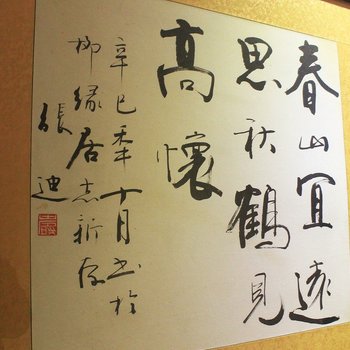 春山宜遠
思秋鶴見
高懷
辛巳季十月書於
柳緣居志新存
張迪